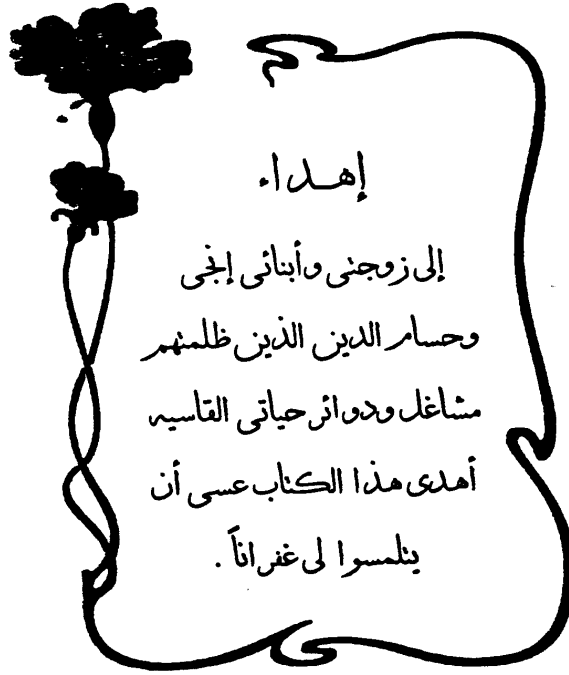 إهداء
إلى زوجتى وأبنائى إنجى
وحسام الدين الذين ظلمتهم
مشاغل ودوائر حياتى القاسيه
أهدى هذا الكتاب عسى أن
يتلمسوا لى غفراناً .